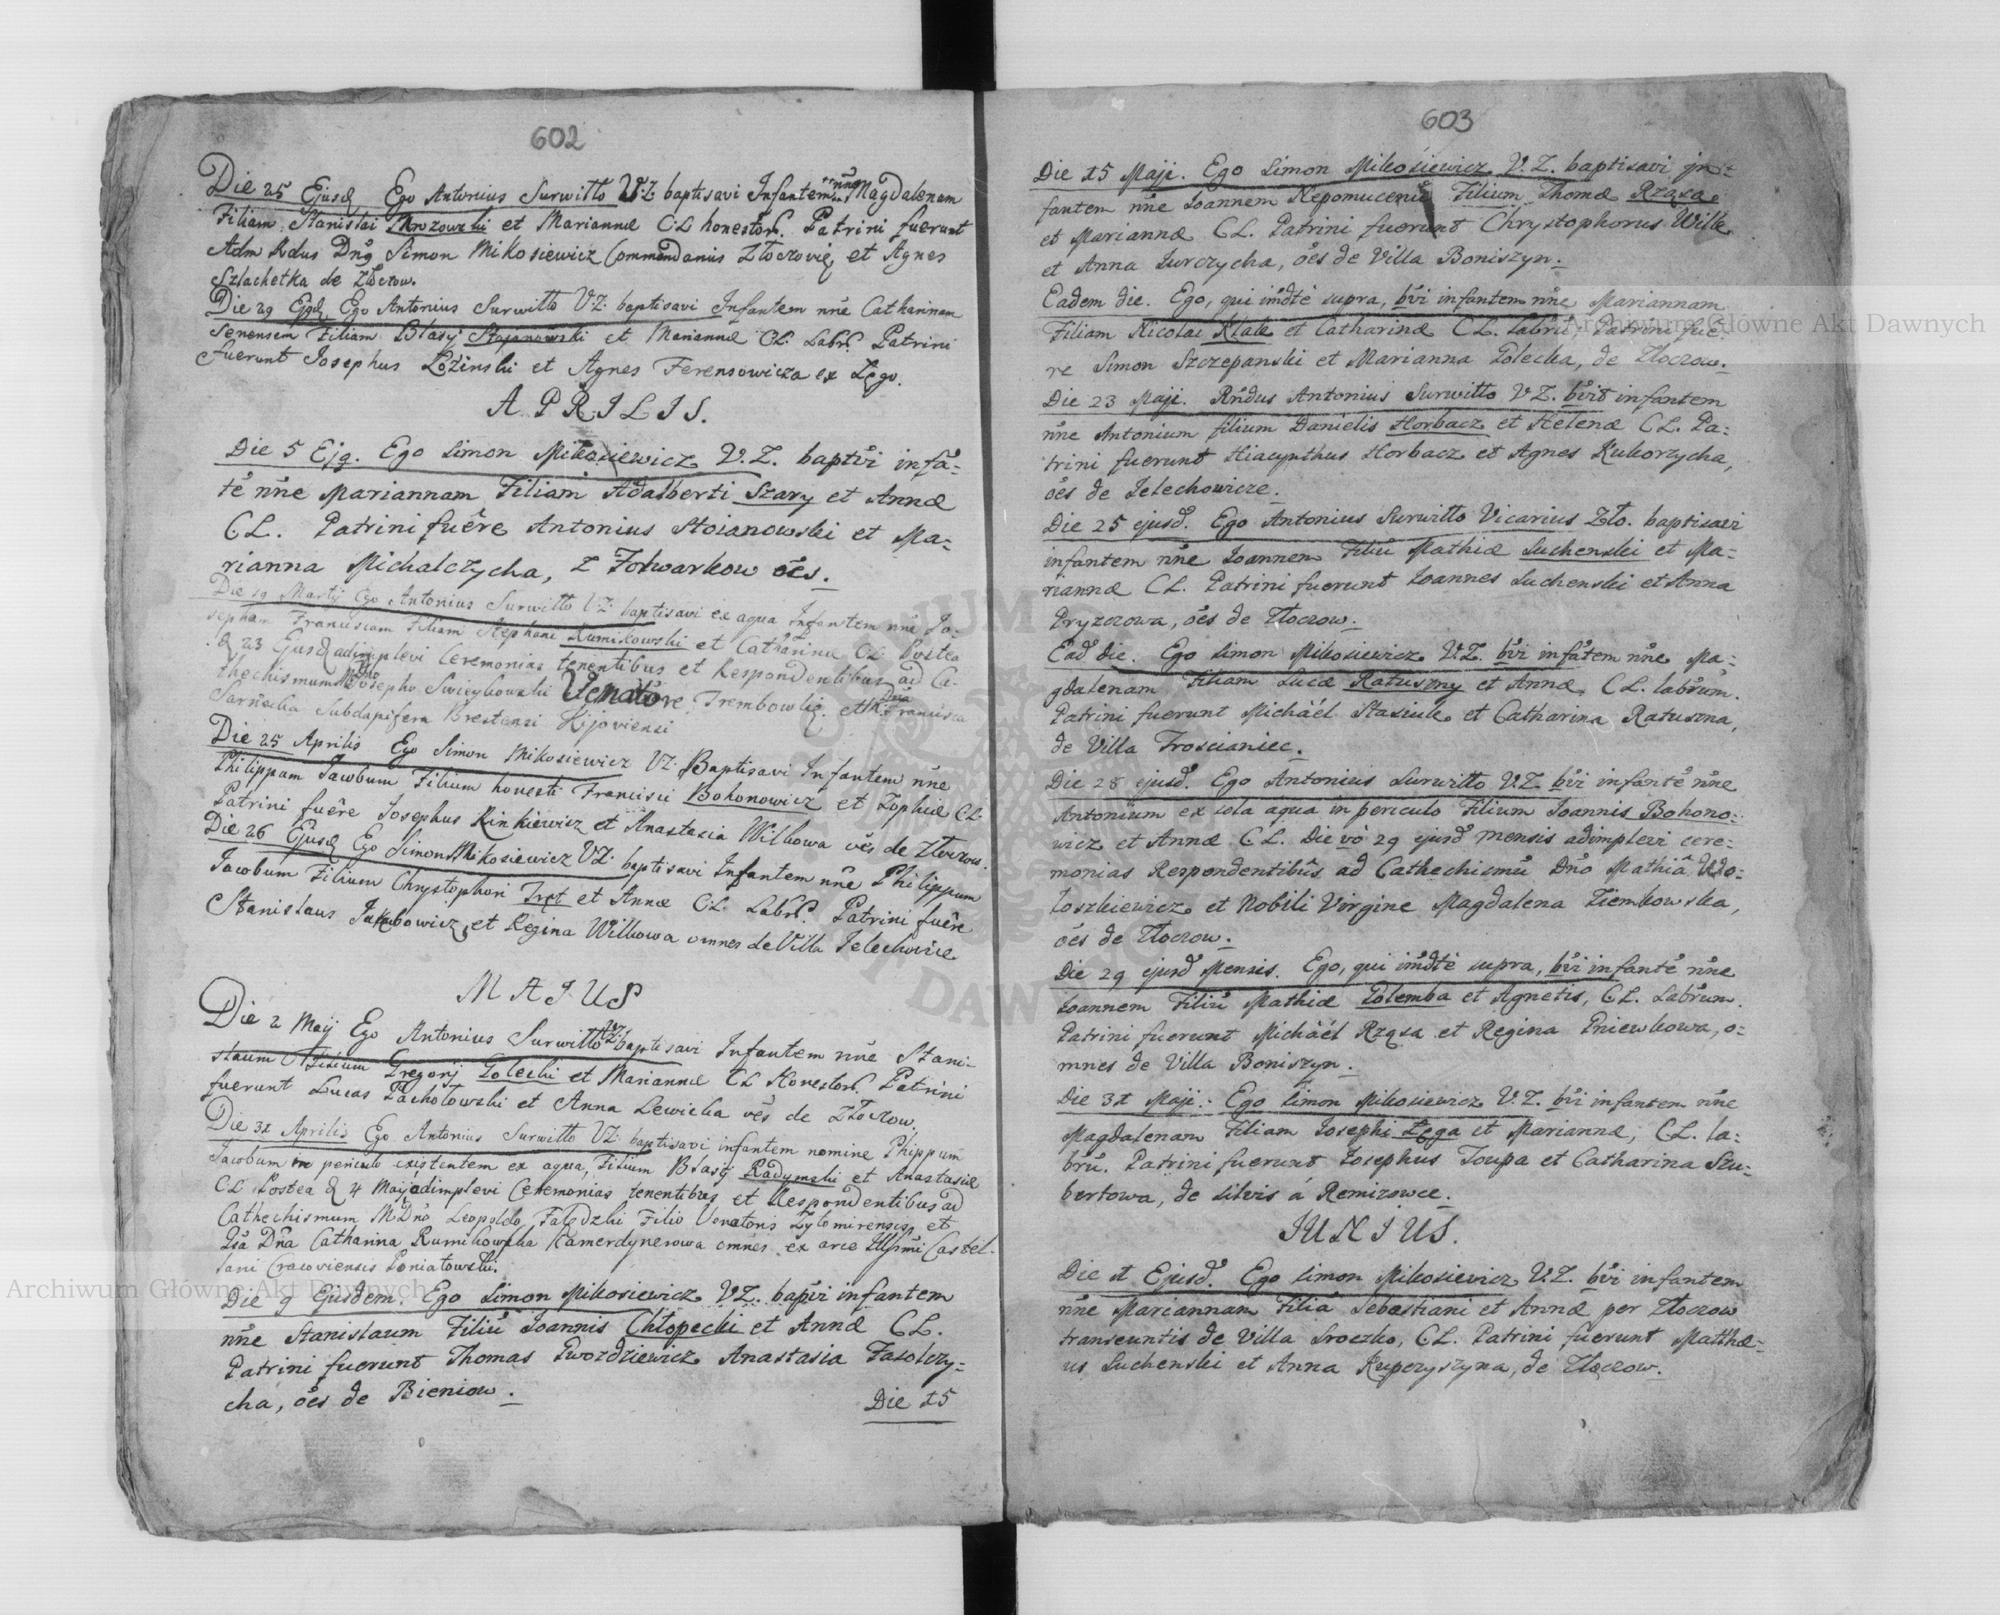 602
Die 25 Ejusd Ego Antonius Surwitto V:Z baptisavi Infantem nn̄e Magdalenam
Filiam Stanislai Mrozowski et Mariannæ CL honestor. Patrini fuerunt
Adm Rdus Dn̄g Simon Mikosiewicz Commendarius Złoczovię et Agnes
Szlachetka de Złoczow.
Die 29 Ejqd Ego Antonius Surwitto V:Z: baptisavi Infantem nn̄e Catharinam
Senensem Filiam Blasij Stojanowski et Mariannæ CL: Labr. Patrini
fuerunt Josephus Łoźinski et Agnes Ferensowicza ex Łęgo.
APRILIS.
Die 5 Ejq. Ego Simon Mikosiewicz V.Z. baptv̄i infā-
tē nn̄e Mariannam Filiam Adalberti Szary et Annæ
CL. Patrini fuêre Antonius Stoianowski et Ma-
rianna Michalczycha, z Folwarkow oēs.
Die 19 Martij Ego Antonius Surwitto V:Z: baptisavi ex aqua Infantem nn̄e Jo-
sepham Franciscam Filiam Stephani Rumikowski et Catharinæ CL Postea
d 23 Ejusd adimplevi Ceremonias tenentibus et Respondentibus ad Ca-
thechismum MDno Josepho Swieykowski Venatore Trembowlię. et M. Dn̄a Francisca
Sarnecka Subdapifera Brestensi Kijoviensi
Die 25 Aprilis Ego Simon Mikosiewicz VZ: Baptisavi Infantem nn̄e
Philippum Jacobum Filium honesti Francisci Bohonowicz et Zophiæ CL.
Patrini fuêre Josephus Rinkiewicz et Anastasia Wilkowa oēs de Złoczow.
Die 26 Ejusd Ego Simon Mikosiewicz VZ: baptisavi Infantem nn̄e Philippum
Jacobum Filium Chrystophori Tręt et Annæ CL. Labr. Patrini fuêre
Stanislaus Jakubowicz et Regina Wilkowa omnes de Villa Jelechowice
MAJUS
Die 2 Maij Ego Antonius Surwitto VZ: baptisavi Infantem nn̄e Stani-
slaum Filium Gregorij Golecki et Mariannæ CL Honestor Patrini
fuerunt Lucas Pacholowski et Anna Lewicka oēs de Złoczow.
Die 31 Aprilis Ego Antonius Surwitto VZ: baptisavi infantem nomine Phippum
Jacobum in periculo existentem ex aqua, Filium Blasij Radymski et Anastasiæ
CL Postea d 4 Maij adimplevi Ceremonias tenentibus et Respondentibus ad
Cathechismum MDn̄o Leopoldo Falędzki Filio Venatoris Zytomirensis et
Dn̄a Catharina Rumikowska Kamerdynerowa omnes ex arce Illssmi Castel-
lani Cracoviensis Poniatowski.
Die 9 Ejusdem. Ego Simon Mikosiewicz VZ. bapv̄i infantem
nn̄e Stanislaum Filiū Joannis Chłopecki et Annæ CL.
Patrini fuerunt Thomas Gwozdziewicz Anastasia Fasolczy-
cha, oēs de Bieniow.
Die 15
603
Die 15 Maji. Ego Simon Mikosiewicz V.Z. baptisavi jn-
fantem nn̄e Joannem Nepomucenū Filium Thomæ Rząsa
et Mariannæ CL. Patrini fuerunt Chrystophorus Wilk
et Anna Jurczycha, oēs de Villa Boniszyn.
Eadem die. Ego, qui im̄dtè supra, bv̄i infantem nn̄e Mariannam
Filiam Nicolai Klak et Catharinæ CL. Labrū, Patrini fue-
re Simon Szczepanski et Marianna Golecka, de Złoczow.
Die 23 Maji. Rn̄dus Antonius Surwitto V.Z. bv̄it infantem
nn̄e Antonium filium Danielis Horbacz et Helenæ CL. Pa-
trini fuerunt Hiacynthus Horbacz et Agnes Kukorzycha,
oēs de Jelechowicze.
Die 25 ejusd. Ego Antonius Surwitto Vicarius Zło. baptisavi
infantem nn̄e Joannem Filiū Mathiæ Suchenski et Ma-
riannæ CL. Patrini fuerunt Joannes Suchenski et Anna
Pryzczowa, oēs de Złoczow.
Ead die. Ego Simon Mikosiewicz V.Z. bv̄i infātem nn̄e Ma-
gdalenam Filiam Lucæ Ratuszny et Annæ, CL. labrum.
Patrini fuerunt Michäél Stasiuk et Catharina Ratuszna,
de Villa Troscianiec.
Die 28 ejusd. Ego Antonius Surwitto V.Z. bv̄i infantē nn̄e
Antonium ex sola aqua in periculo Filium Joannis Bohono-
wicz et Annæ CL. Die vò 29 ejusd mensis adimplevi cere-
monias Respondentibus ad Cathechismū Dn̄o Mathiâ Wło-
łoszkiewicz et Nobili Virgine Magdalena Ziembowska,
oēs de Złoczow.
Die 29 ejusd Mensis. Ego, qui im̄dtè supra, bv̄i infantē nn̄e
Joannem Filiū Mathiæ Golemba et Agnetis, CL. Labrum.
Patrini fuerunt Michäél Rząsa et Regina Pniewkowa, o-
mnes de Villa Boniszyn.
Die 31 Maji. Ego Simon Mikosiewicz V.Z. bv̄i infantem nn̄e
Magdalenam Filiam Josephi Łęga et Mariannæ, CL. la-
brū. Patrini fuerunt Josephus Joupa et Catharina Szu-
bertowa, de silvis á Remizowce.
IUNIUS.
Die 1 Ejusd. Ego Simon Mikosievicz V.Z. bv̄i infantem
nn̄e Mariannam Filiā Sebastiani et Annæ per Złoczow
transeuntis de Villa Sroczko, CL. Patrini fuerunt Matthæ-
us Suchenski et Anna Kupczyszyna, de Złoczow.
Archiwum Główne Akt Dawnych
Archiwum Główne Akt Dawnych